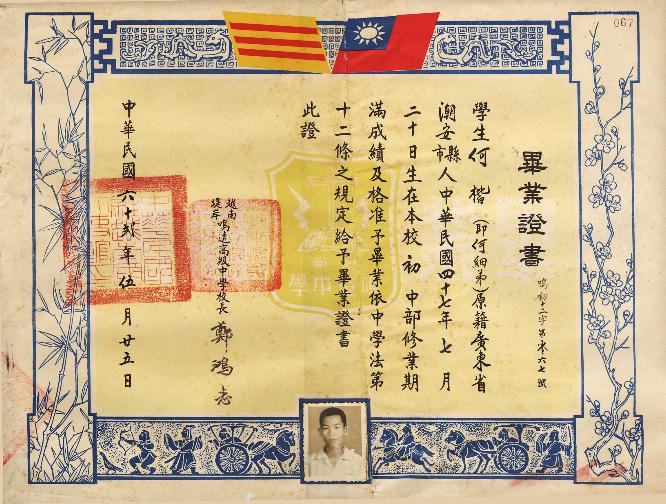 067
畢業證書
鳴初十二字第零六七號
學生何楷（即何細弟）原籍廣東省
潮安縣市人中華民國四十七年七月
二十日生在本校初中部修業期
滿成績及格准予畢業依中學法第
十二條之規定給予畢業證書
此證
越南堤岸鳴遠高級中學校長鄭鴻志
中華民國六十貳年伍月廿五日